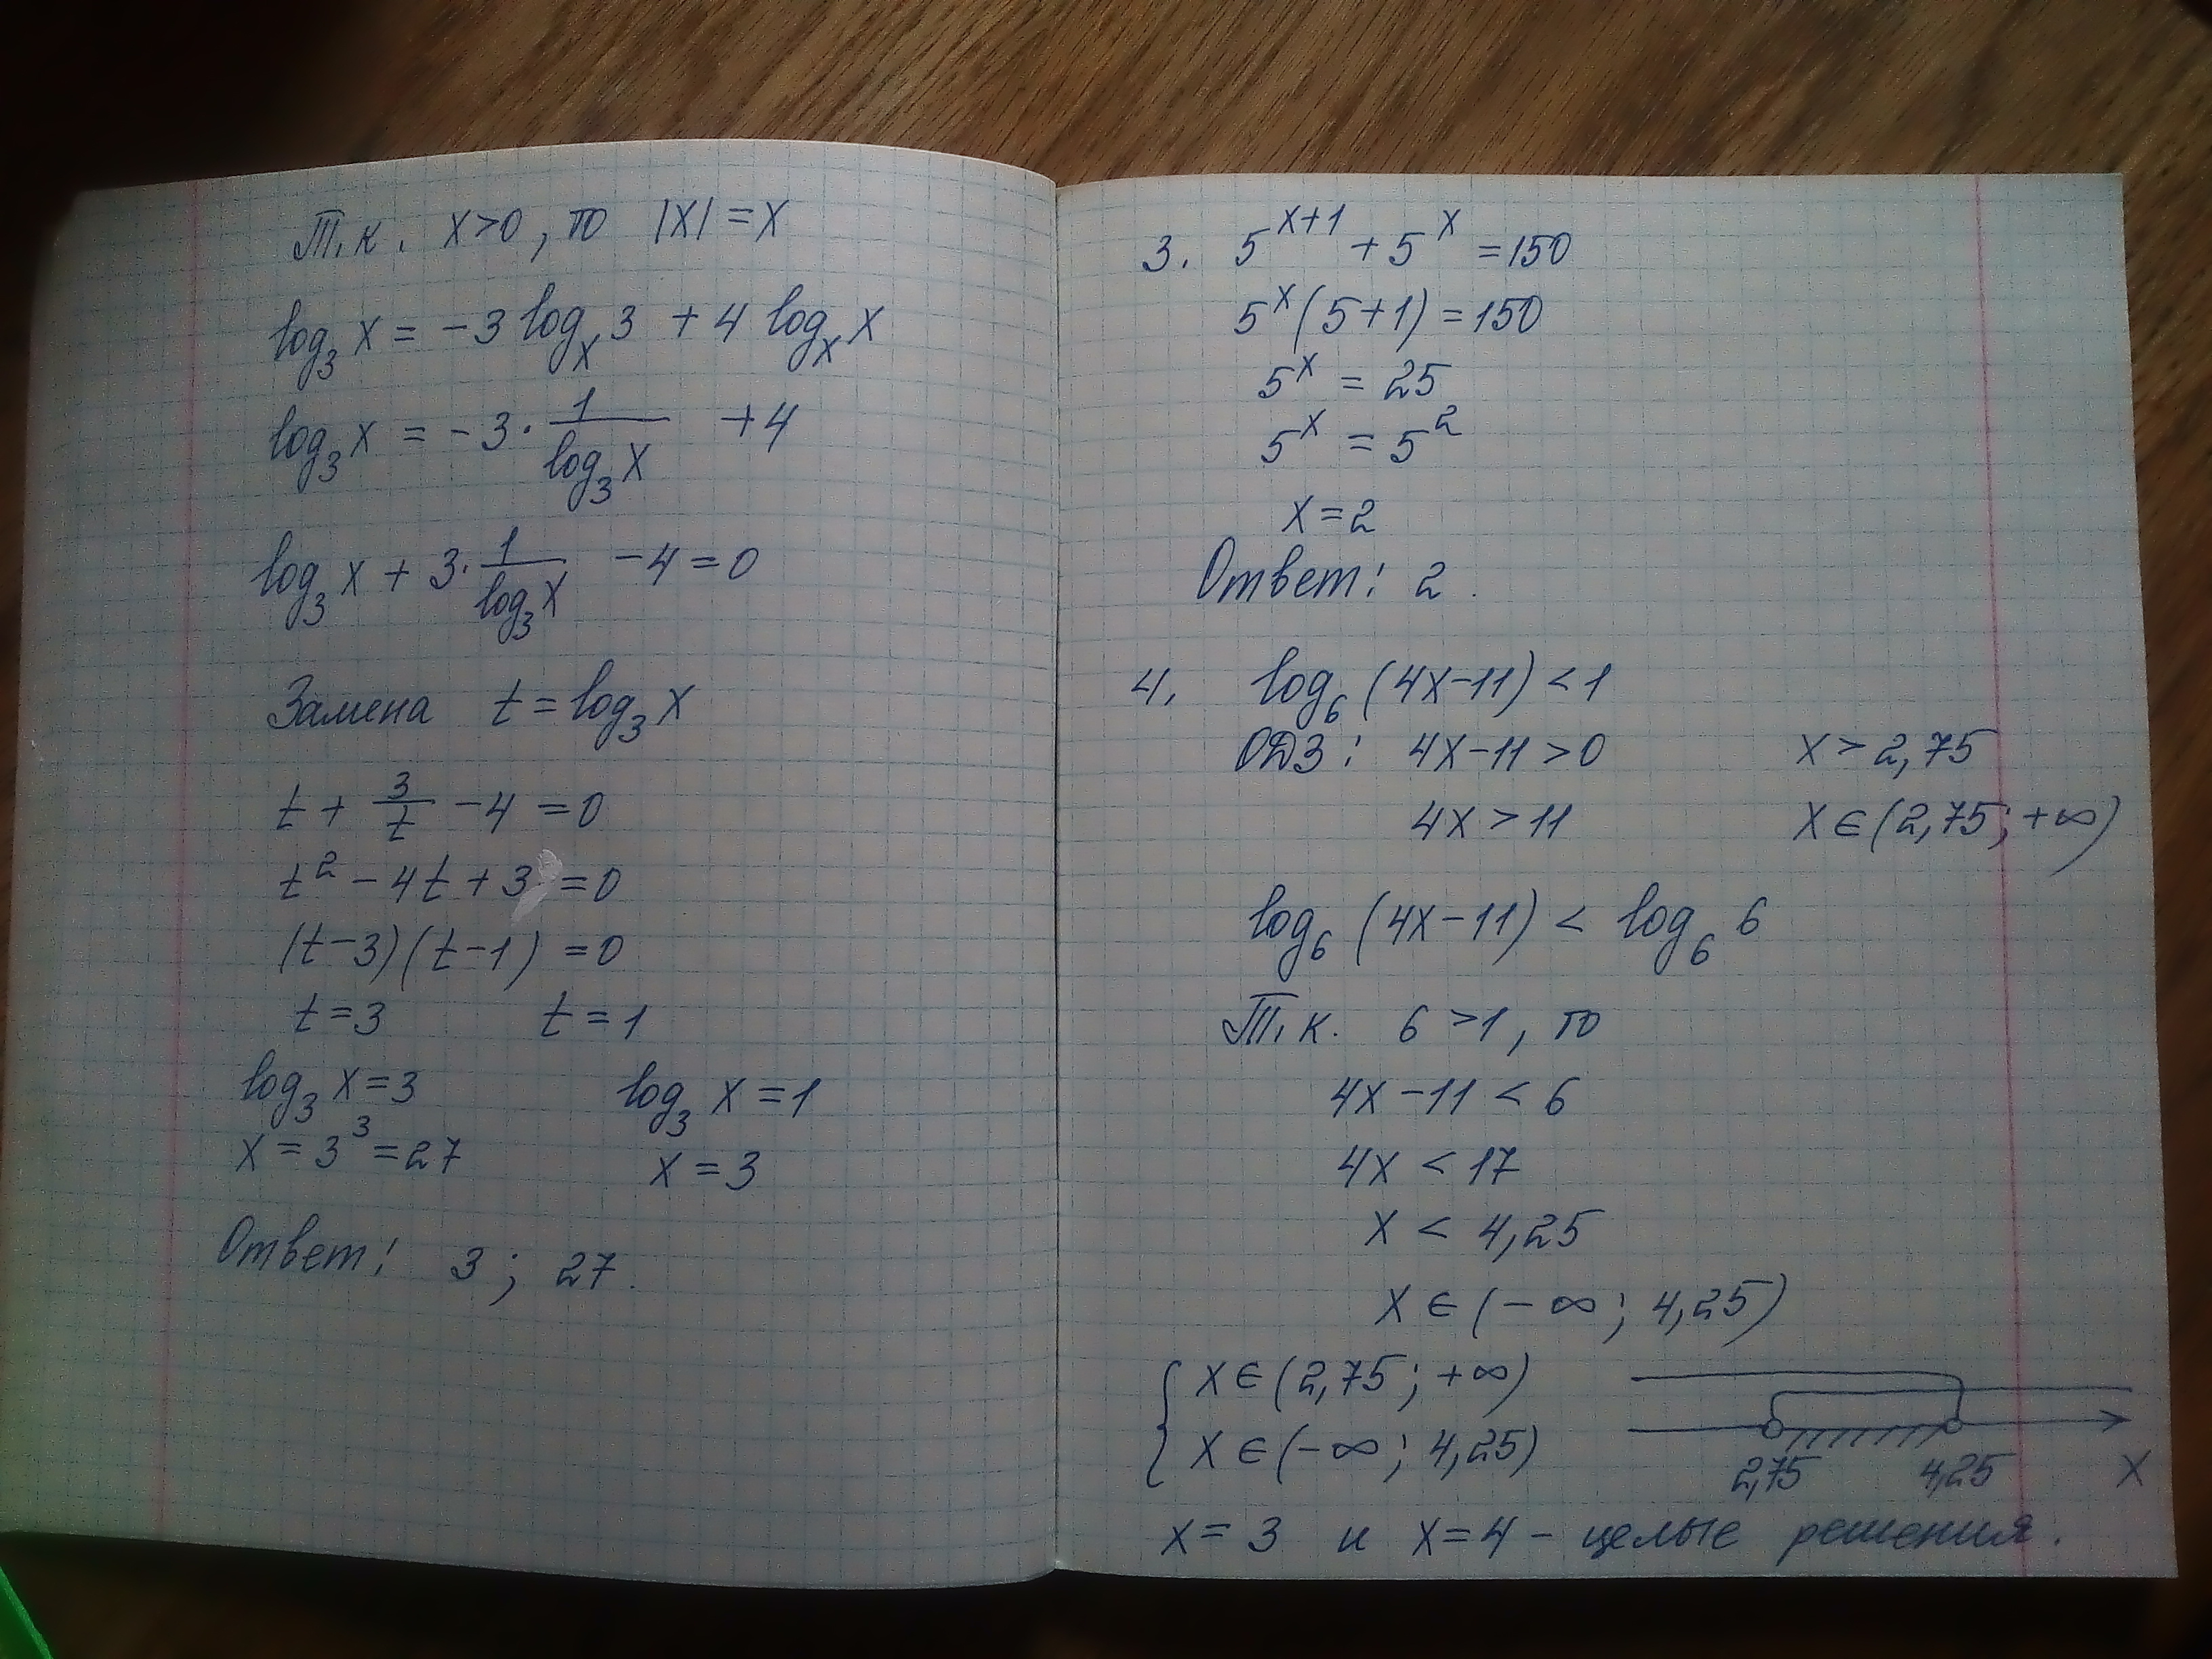 Т.к. x>0, то |x| = x
log₃ x = -3 logₓ 3 + 4 logₓ x
log₃ x = -3 · 1/(log₃ x) + 4
log₃ x + 3 · 1/(log₃ x) - 4 = 0
Замена t = log₃ x
t + 3/t - 4 = 0
t² - 4t + 3 = 0
(t-3)(t-1) = 0
t = 3 t = 1
log₃ x = 3 log₃ x = 1
x = 3³ = 27 x = 3
Ответ: 3; 27.
3. 5^(x+1) + 5^x = 150
5^x (5+1) = 150
5^x = 25
5^x = 5²
x = 2
Ответ: 2.
4. log₆ (4x-11) < 1
ОДЗ: 4x-11 > 0 x > 2,75
4x > 11 x ∈ (2,75; +∞)
log₆ (4x-11) < log₆ 6
Т.к. 6 > 1, то
4x - 11 < 6
4x < 17
x < 4,25
x ∈ (-∞; 4,25)
{ x ∈ (2,75; +∞)
x ∈ (-∞; 4,25)
2,75 4,25 x
x = 3 и x = 4 - целые решения.